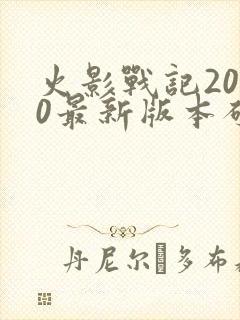 火影戰記20
0最新版本
丹尼尔 多布